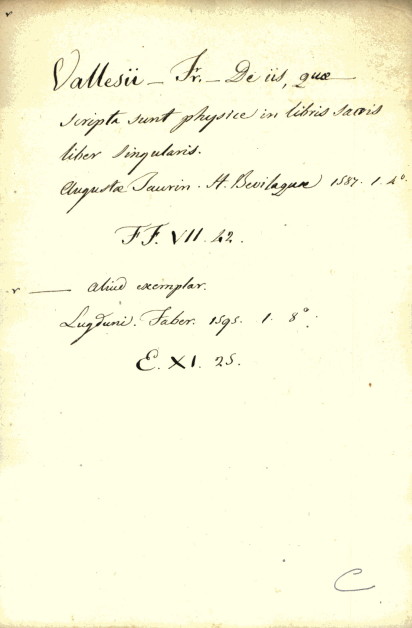 Vallesii — Fr. — De iis, quæ
scripta sunt physice in libris sacris
liber singularis.
Augustæ Taurin. H. Bevilaquæ 1587. 1. 4°.
FF. VII. 42.
— aliud exemplar.
Lugduni. Faber. 1595. 1. 8°.
E. XI. 25.
C